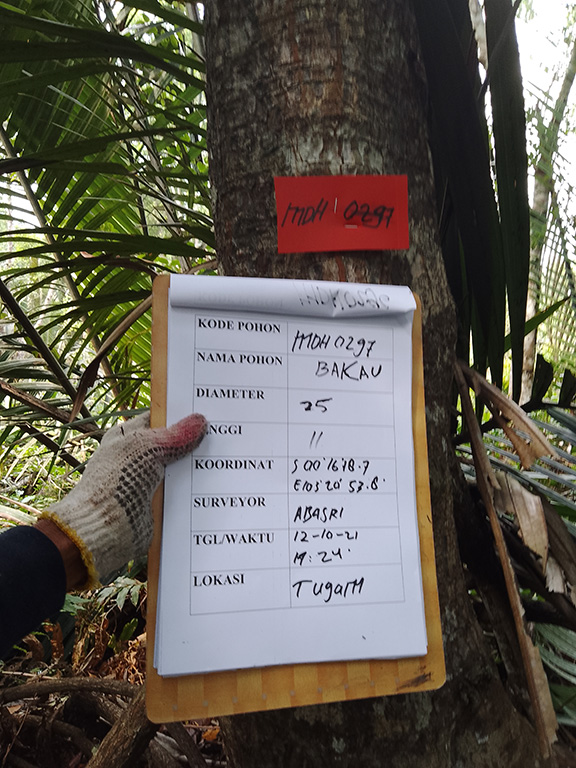 MDH 0297
KODE POHON MDH 0297
NAMA POHON BAKAU
DIAMETER 25
INGGI 11
KOORDINAT S 00°16'18.7
E103 20' 53.8'
SURVEYOR ABASRI
TGL/WAKTU 12-10-21
LOKASI TugarM